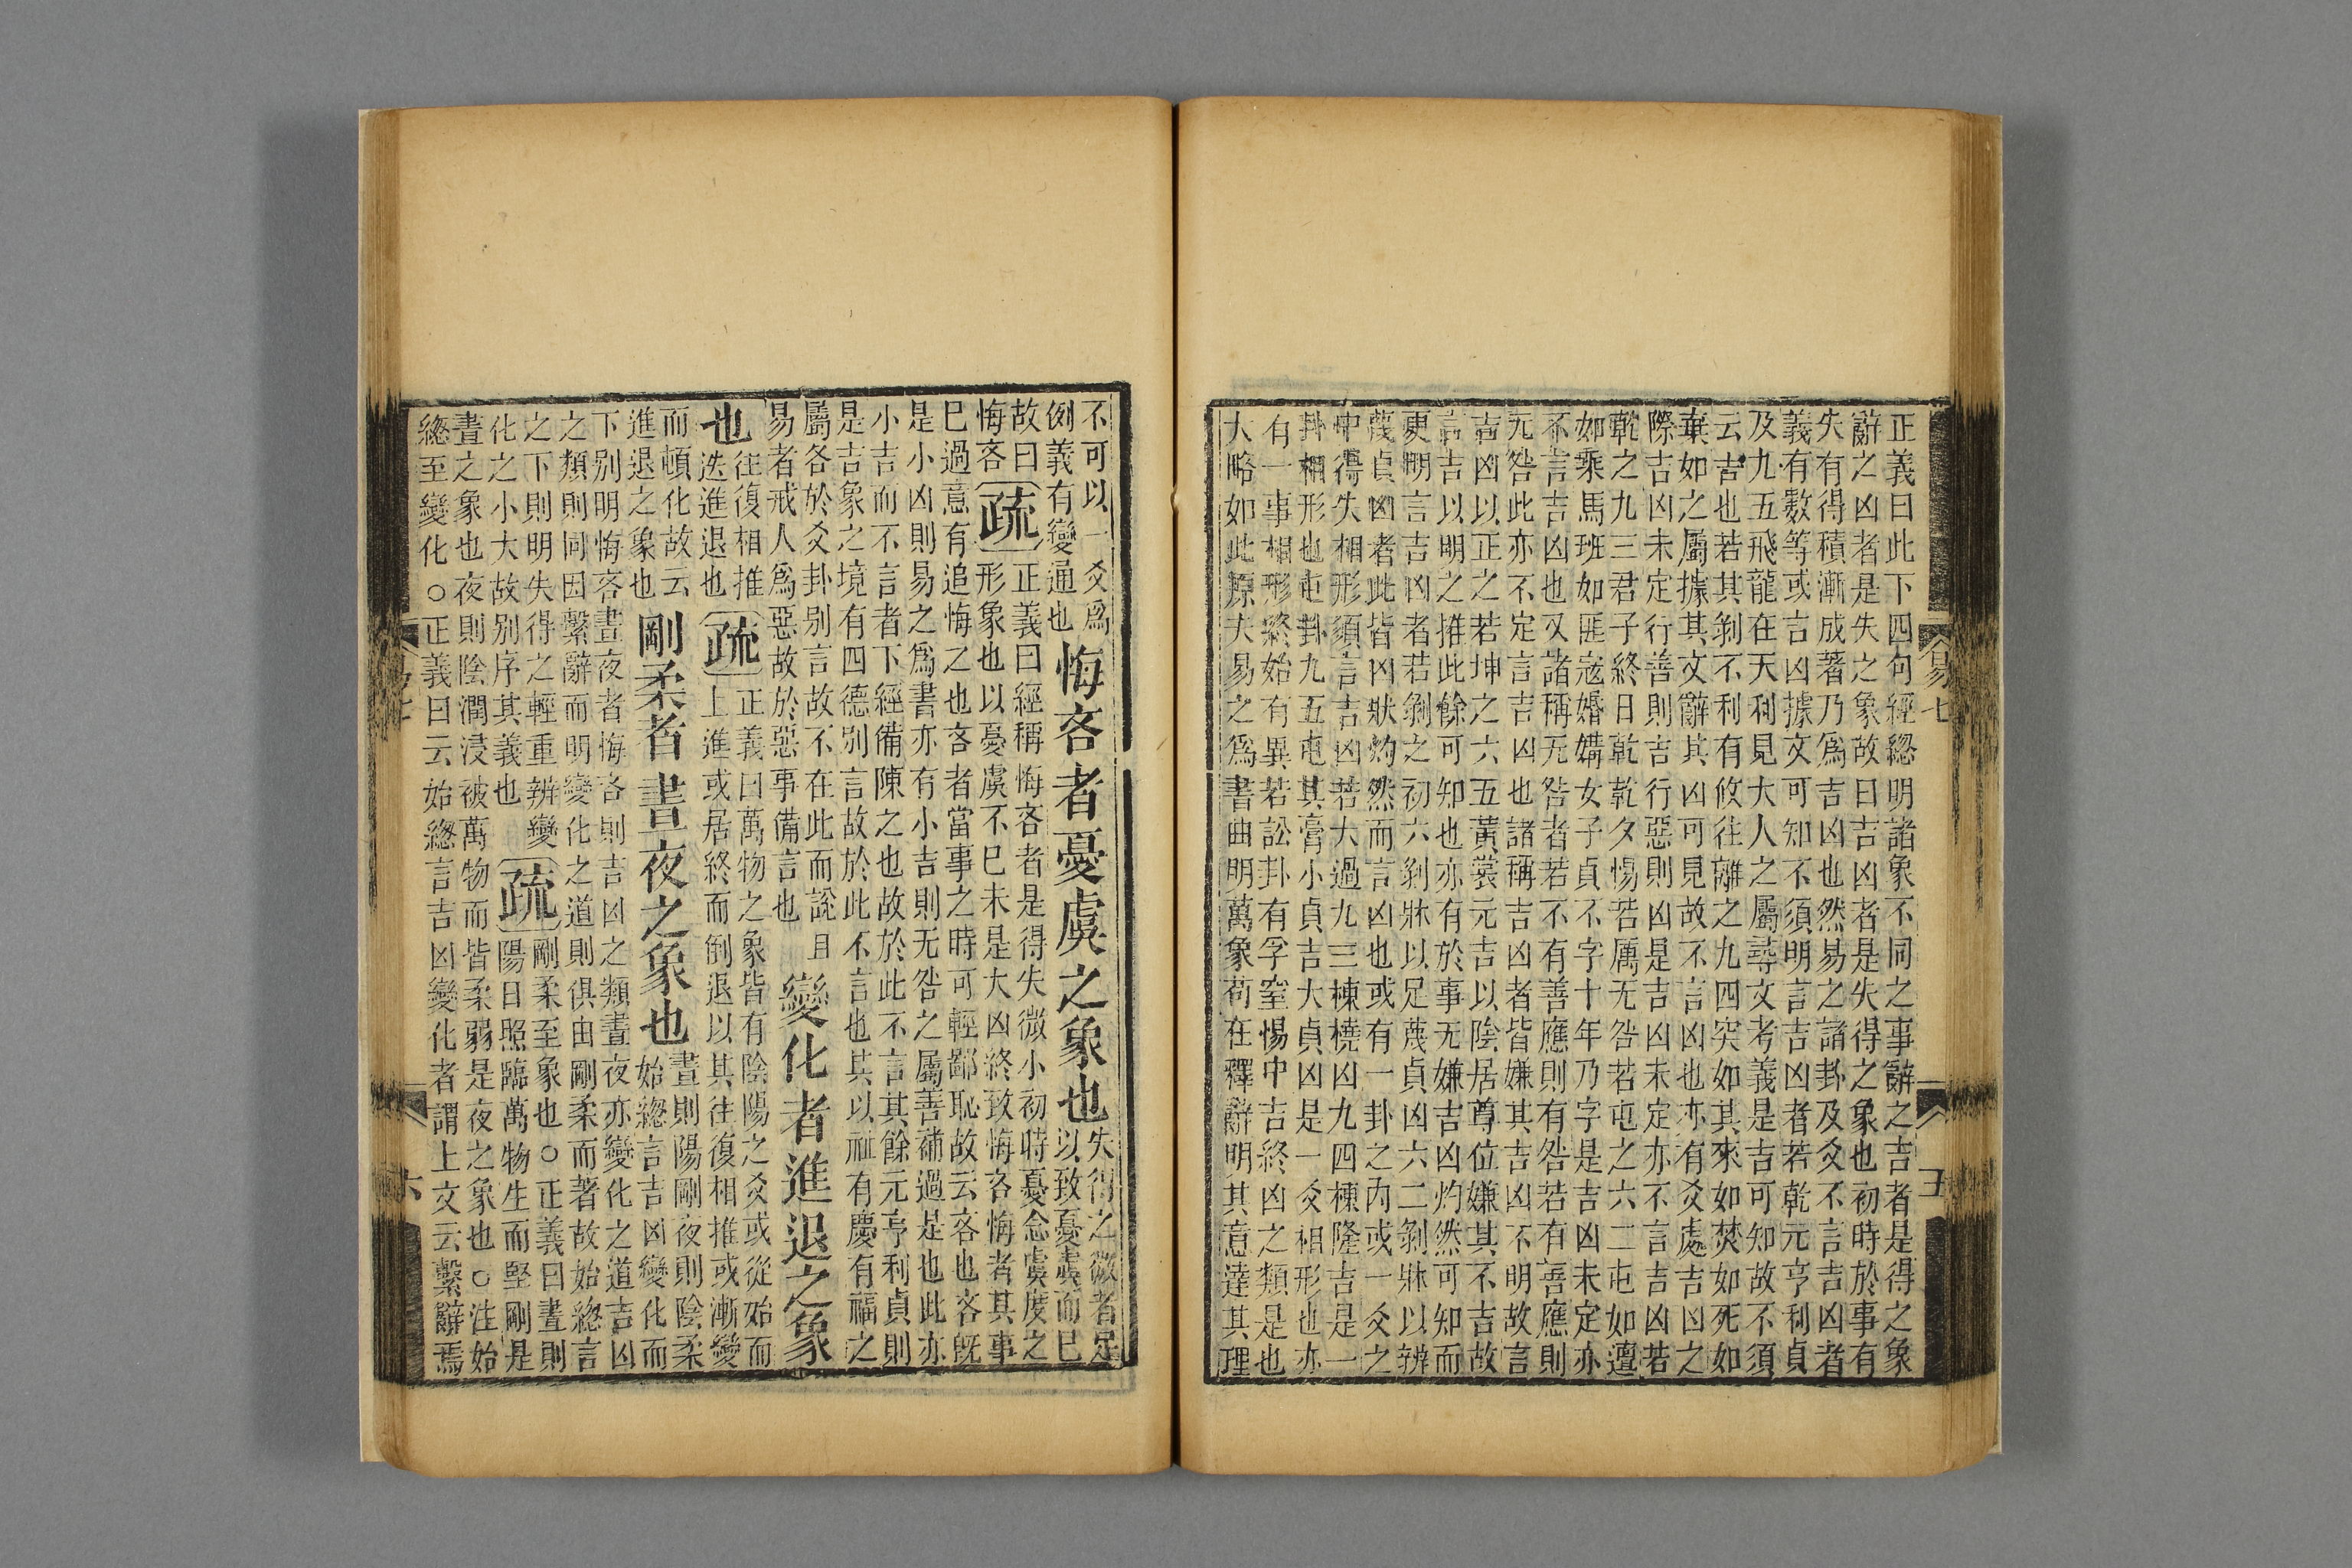 正義曰此下四句經緫明諸象不同之事辭之吉者是得之象
辭之凶者是失之象故曰吉凶者是失得之象也初時於事有
失有得積漸成著乃爲吉凶也然易之諸卦及爻不言吉凶者
義有數等或吉凶據文可知不須明言吉凶者若乾元亨利貞
及九五飛龍在天利見大人之屬尋文考義是吉可知故不須
云吉也若其剝不利有攸往離之九四突如其來如焚如死如
棄如之屬據其文辭其凶可見故不言凶也亦有爻處吉凶之
際吉凶未定行善則吉行惡則凶是吉凶未定亦不言吉凶若
乾之九三君子終日乾乾夕惕若厲无咎若屯之六二屯如邅
如乘馬班如匪寇婚媾女子貞不字十年乃字是吉凶未定亦
不言吉凶也又諸稱无咎者若不有善應則有咎若有善應則
无咎此亦不定言吉凶也諸稱吉凶者皆嫌其吉凶不明故言
吉凶以正之若坤之六五黃裳元吉以陰居尊位嫌其不吉故
言吉以明之推此餘可知也亦有於事无嫌吉凶灼然可知而
更明言吉凶者若剝之初六剝牀以足蔑貞凶六二剝牀以辨
蔑貞凶者此皆凶狀灼然而言凶也或有一卦之內或一爻之
中得失相形須言吉凶若大過九三棟橈凶九四棟隆吉是一
卦相形也屯卦九五屯其膏小貞吉大貞凶是一爻相形也亦
有一事相形終始有異若訟卦有孚窒惕中吉終凶之類是也
大略如此原夫易之爲書曲明萬象苟在釋辭明其意達其理
易七
五
不可以一爻爲
例義有變通也
悔吝者憂虞之象也
失得之微者足
以致憂虞而已
故曰
悔吝
疏
正義曰經稱悔吝者是得失微小初時憂念虞度之
形象也以憂虞不已未是大凶終致悔吝悔者其事
已過意有追悔之也吝者當事之時可輕鄙恥故云吝也吝旣
是小凶則易之爲書亦有小吉則无咎之屬善補過是也此亦
小吉而不言者下經備陳之也故於此不言其餘元亨利貞則
是吉象之境有四德別言故於此不言也其以祉有慶有福之
屬各於爻卦別言故不在此而說且
易者戒人爲惡故於惡事備言也
變化者進退之象
也
往復相推
迭進退也
疏
正義曰萬物之象皆有陰陽之爻或從始而
上進或居終而倒退以其往復相推或漸變
而頓化故云
進退之象也
剛柔者晝夜之象也
晝則陽剛夜則陰柔
始緫言吉凶變化而
下別明悔吝晝夜者悔吝則吉凶之類晝夜亦變化之道吉凶
之類則同因繫辭而明變化之道則俱由剛柔而著故始緫言
之下則明失得之輕重辨變
化之小大故別序其義也
疏
剛柔至象也○正義曰晝則
陽日照臨萬物生而堅剛是
晝之象也夜則陰潤浸被萬物而皆柔弱是夜之象也○注始
緫至變化○正義曰云始緫言吉凶變化者謂上文云繫辭焉
六